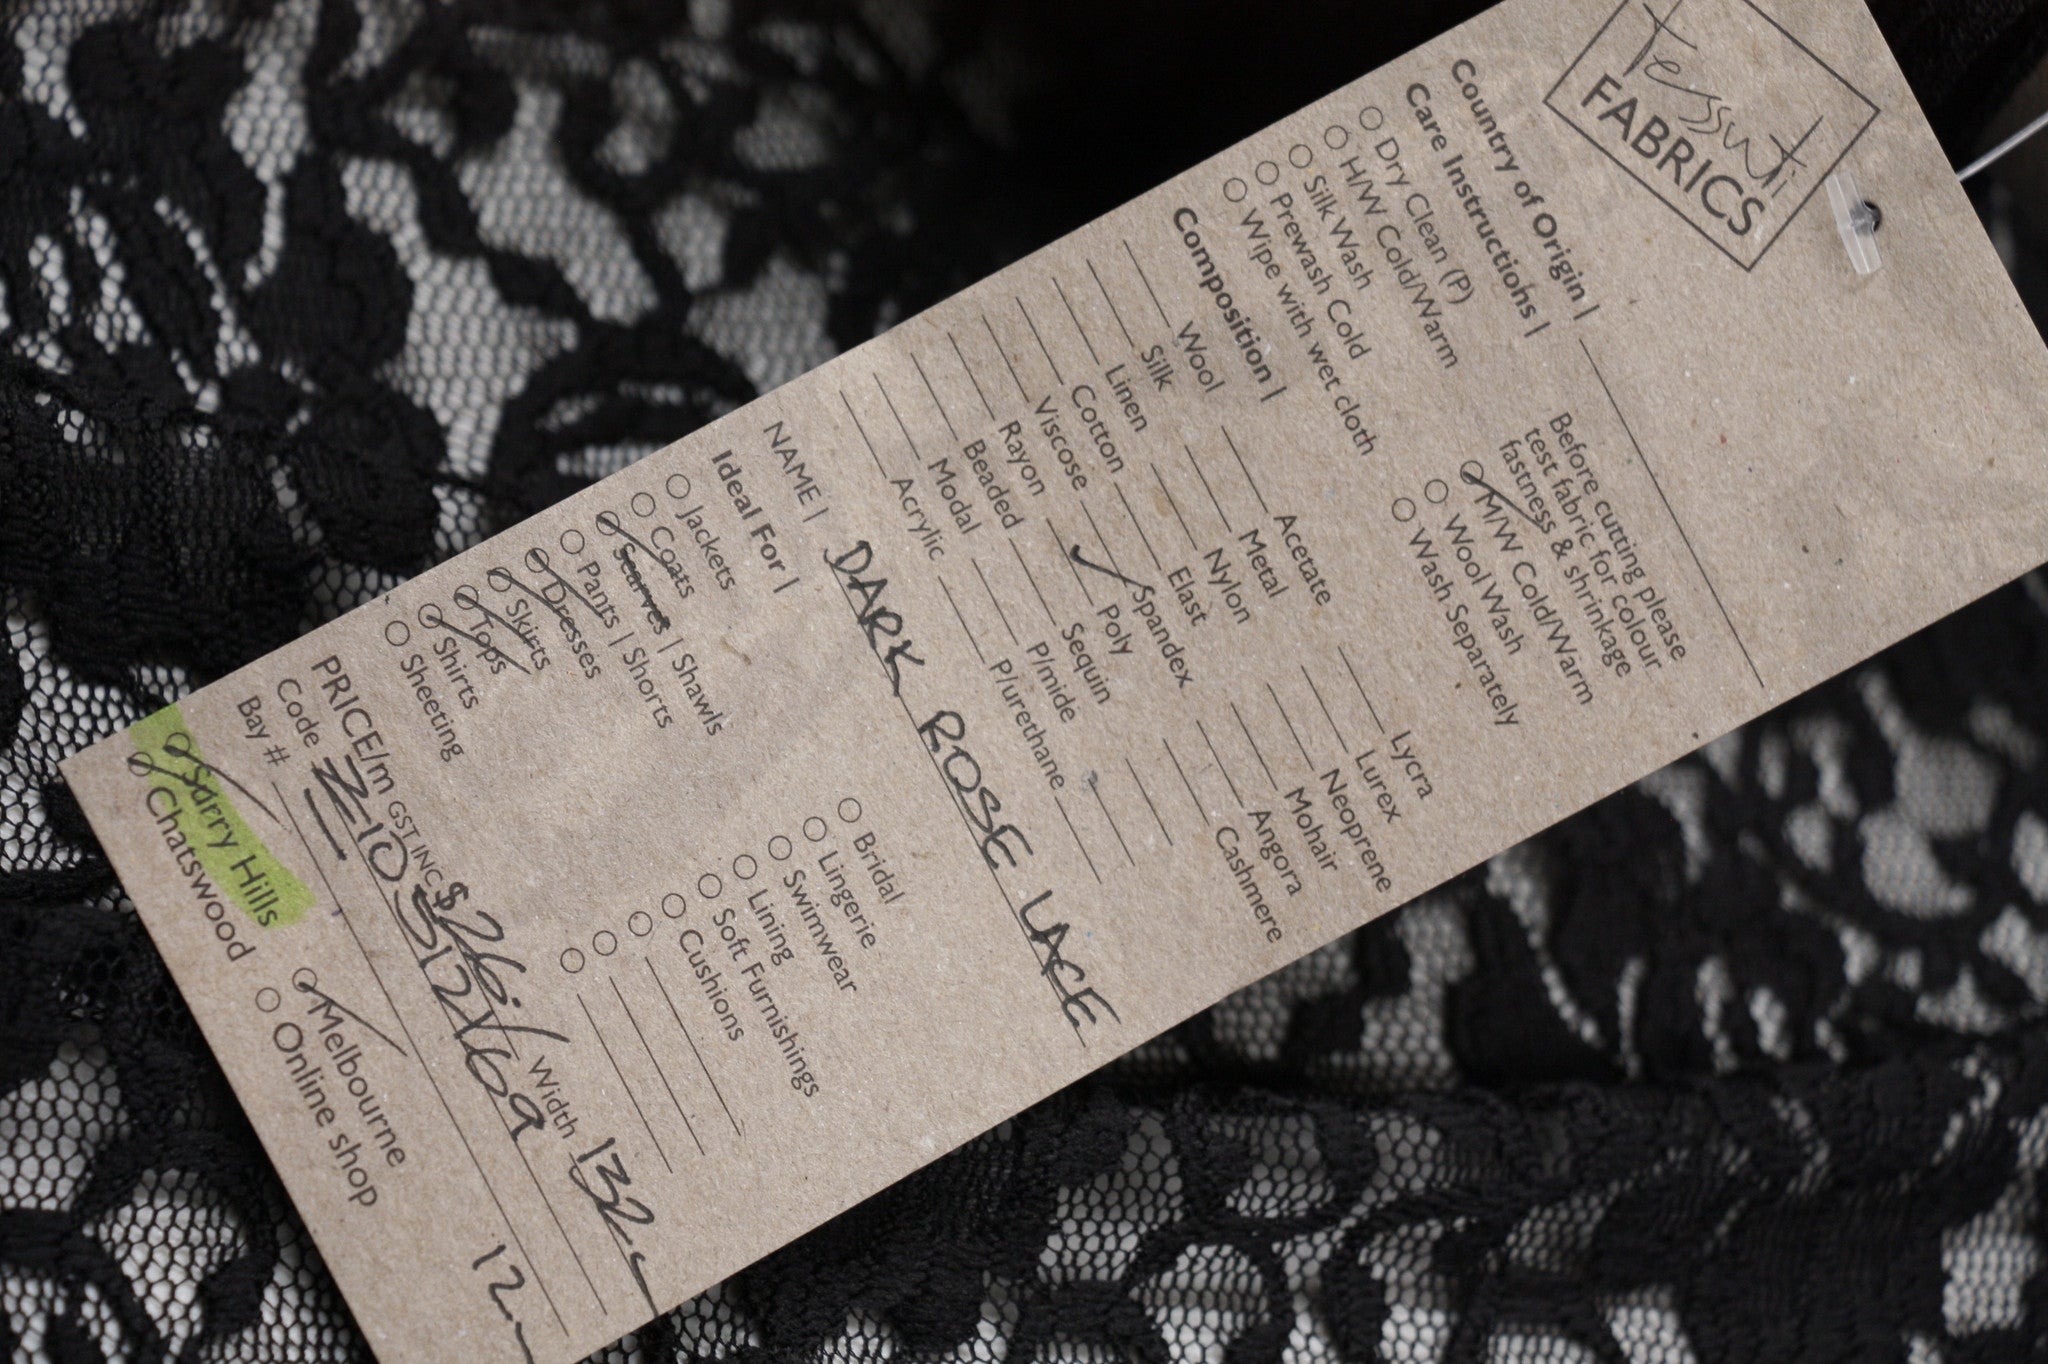 Tessuti
FABRICS
Country of Origin |
Care Instructions |
Dry Clean (P)
H/W Cold/Warm
Silk Wash
Prewash Cold
Wipe with wet cloth
Before cutting please
test fabric for colour
fastness & shrinkage
M/W Cold/Warm
Wool Wash
Wash Separately
Composition |
Wool
Silk
Linen
Cotton
Viscose
Rayon
Beaded
Modal
Acrylic
Acetate
Metal
Nylon
Elast
Spandex
Poly
Sequin
P/mide
P/urethane
Lycra
Lurex
Neoprene
Mohair
Angora
Cashmere
NAME | DARK ROSE LACE
Ideal For |
Jackets
Coats
Scarves | Shawls
Pants | Shorts
Dresses
Skirts
Tops
Shirts
Sheeting
Bridal
Lingerie
Swimwear
Lining
Soft Furnishings
Cushions
PRICE/m GST INC $26 Width 132
Code
Bay #
12
Surry Hills
Chatswood
Melbourne
Online shop